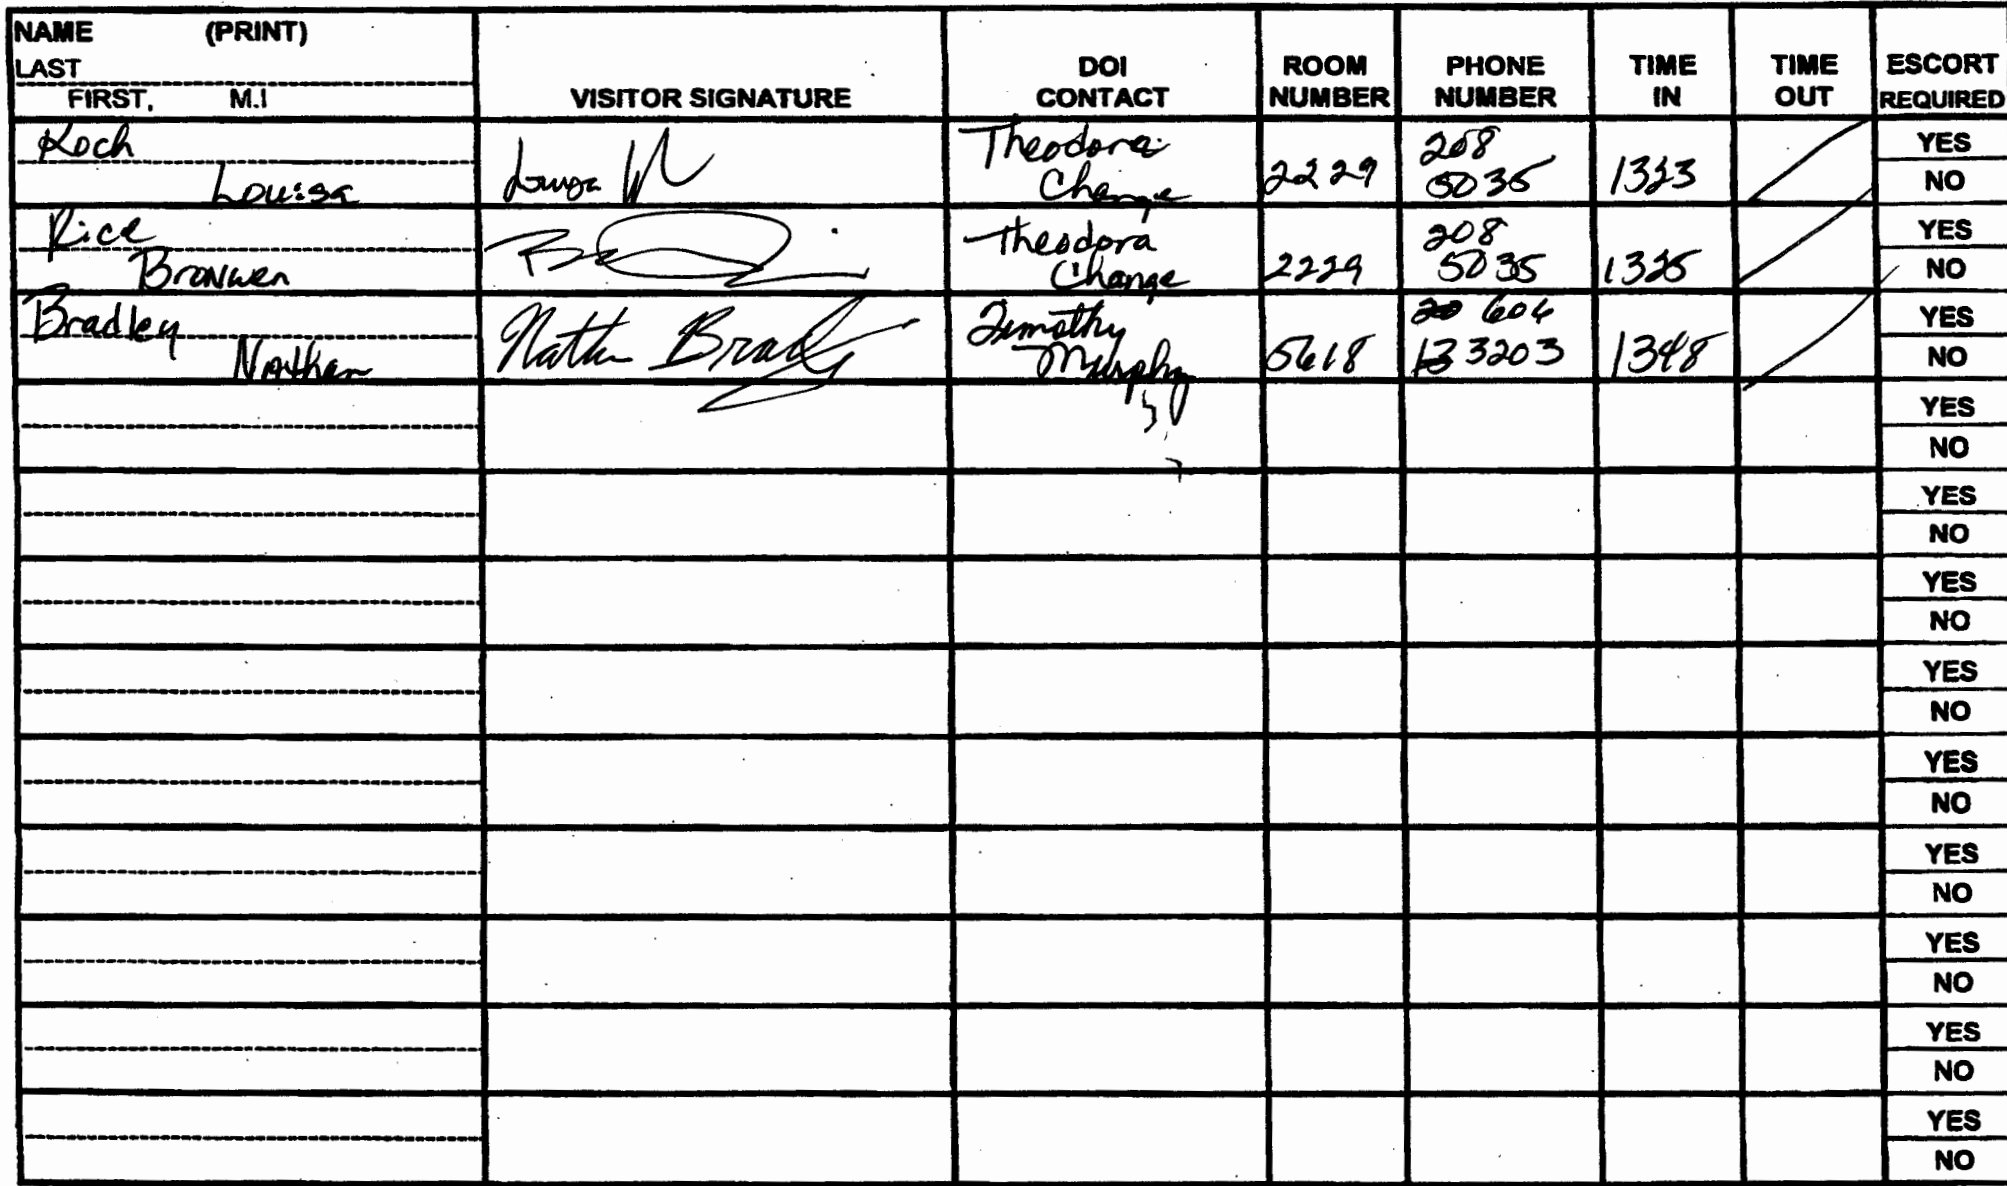 NAME (PRINT)
LAST
FIRST, M.I
VISITOR SIGNATURE
DOI CONTACT
ROOM NUMBER
PHONE NUMBER
TIME IN
TIME OUT
ESCORT REQUIRED
Koch
Louisa
Louisa
Theodora
Change
2229
208
5035
1323
YES
NO
Rice
Bronwen
Theodora
Change
2229
208
5035
1325
YES
NO
Bradley
Nathan
Nathan Bradley
Timothy
Murphy
5618
20 604
13 3203
1348
YES
NO
YES
NO
YES
NO
YES
NO
YES
NO
YES
NO
YES
NO
YES
NO
YES
NO
YES
NO